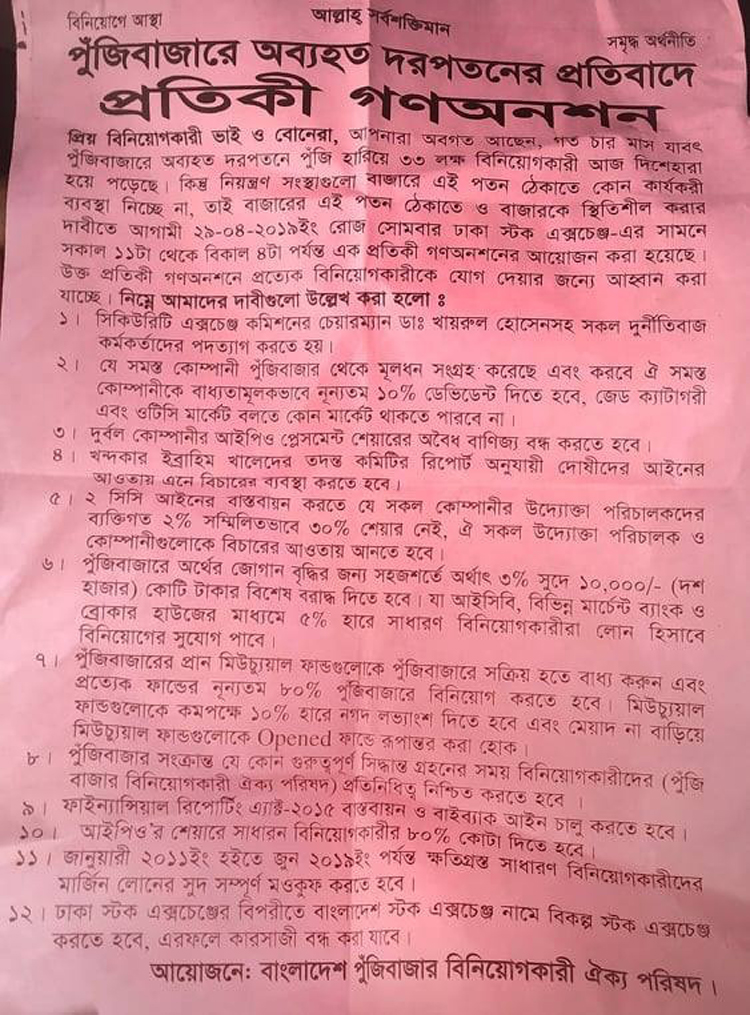 বিনিয়োগে আস্থা
আল্লাহ সর্বশক্তিমান
সমৃদ্ধ অর্থনীতি
পুঁজিবাজারে অব্যহত দরপতনের প্রতিবাদে
প্রতিকী গণঅনশন
প্রিয় বিনিয়োগকারী ভাই ও বোনেরা, আপনারা অবগত আছেন, গত চার মাস যাবৎ
পুঁজিবাজারে অব্যহত দরপতনে পুঁজি হারিয়ে ৩৩ লক্ষ বিনিয়োগকারী আজ দিশেহারা
হয়ে পড়েছে। কিন্তু নিয়ন্ত্রণ সংস্থাগুলো বাজারে এই পতন ঠেকাতে কোন কার্যকরী
ব্যবস্থা নিচ্ছে না, তাই বাজারের এই পতন ঠেকাতে ও বাজারকে স্থিতিশীল করার
দাবীতে আগামী ২৯-০৪-২০১৯ইং রোজ সোমবার ঢাকা স্টক এক্সচেঞ্জ-এর সামনে
সকাল ১১টা থেকে বিকাল ৪টা পর্যন্ত এক প্রতিকী গণঅনশনের আয়োজন করা হয়েছে।
উক্ত প্রতিকী গণঅনশনে প্রত্যেক বিনিয়োগকারীকে যোগ দেয়ার জন্যে আহবান করা
যাচ্ছে। নিম্নে আমাদের দাবীগুলো উল্লেখ করা হলো ঃ
১। সিকিউরিটি এক্সচেঞ্জ কমিশনের চেয়ারম্যান ডাঃ খায়রুল হোসেনসহ সকল দুর্নীতিবাজ
কর্মকর্তাদের পদত্যাগ করতে হয়।
২। যে সমস্ত কোম্পানী পুঁজিবাজার থেকে মূলধন সংগ্রহ করেছে এবং করবে ঐ সমস্ত
কোম্পানীকে বাধ্যতামূলকভাবে নূন্যতম ১০% ডেভিডেন্ট দিতে হবে, জেড ক্যাটাগরী
এবং ওটিসি মার্কেট বলতে কোন মার্কেট থাকতে পারবে না।
৩। দুর্বল কোম্পানীর আইপিও প্লেসমেন্ট শেয়ারের অবৈধ বাণিজ্য বন্ধ করতে হবে।
৪। খন্দকার ইব্রাহিম খালেদের তদন্ত কমিটির রিপোর্ট অনুযায়ী দোষীদের আইনের
আওতায় এনে বিচারের ব্যবস্থা করতে হবে।
৫। ২ সিসি আইনের বাস্তবায়ন করতে যে সকল কোম্পানীর উদ্যোক্তা পরিচালকদের
ব্যক্তিগত ২% সম্মিলিতভাবে ৩০% শেয়ার নেই, ঐ সকল উদ্যোক্তা পরিচালক ও
কোম্পানীগুলোকে বিচারের আওতায় আনতে হবে।
৬। পুঁজিবাজারে অর্থের জোগান বৃদ্ধির জন্য সহজশর্তে অর্থাৎ ৩% সুদে ১০,০০০/- (দশ
হাজার) কোটি টাকার বিশেষ বরাদ্ধ দিতে হবে। যা আইসিবি, বিভিন্ন মার্চেন্ট ব্যাংক ও
ব্রোকার হাউজের মাধ্যমে ৫% হারে সাধারণ বিনিয়োগকারীরা লোন হিসাবে
বিনিয়োগের সুযোগ পাবে।
৭। পুঁজিবাজারের প্রান মিউচ্যুয়াল ফান্ডগুলোকে পুঁজিবাজারে সক্রিয় হতে বাধ্য করুন এবং
প্রত্যেক ফান্ডের নূন্যতম ৮০% পুঁজিবাজারে বিনিয়োগ করতে হবে। মিউচ্যুয়াল
ফান্ডগুলোকে কমপক্ষে ১০% হারে নগদ লভ্যাংশ দিতে হবে এবং মেয়াদ না বাড়িয়ে
মিউচ্যুয়াল ফান্ডগুলোকে Opened ফান্ডে রূপান্তর করা হোক।
৮। পুঁজিবাজার সংক্রান্ত যে কোন গুরুত্বপূর্ণ সিদ্ধান্ত গ্রহনের সময় বিনিয়োগকারীদের (পুঁজি
বাজার বিনিয়োগকারী ঐক্য পরিষদ) প্রতিনিধিত্ব নিশ্চিত করতে হবে ।
৯। ফাইন্যান্সিয়াল রিপোর্টিং এ্যাক্ট-২০১৫ বাস্তবায়ন ও বাইব্যাক আইন চালু করতে হবে।
১০। আইপিও'র শেয়ারে সাধারন বিনিয়োগকারীর ৮০% কোটা দিতে হবে।
১১। জানুয়ারী ২০১১ইং হইতে জুন ২০১৯ইং পর্যন্ত ক্ষতিগ্রস্ত সাধারণ বিনিয়োগকারীদের
মার্জিন লোনের সুদ সম্পূর্ণ মওকুফ করতে হবে।
১২। ঢাকা স্টক এক্সচেঞ্জের বিপরীতে বাংলাদেশ স্টক এক্সচেঞ্জ নামে বিকল্প স্টক এক্সচেঞ্জ
করতে হবে, এরফলে কারসাজী বন্ধ করা যাবে।
আয়োজনে: বাংলাদেশ পুঁজিবাজার বিনিয়োগকারী ঐক্য পরিষদ।